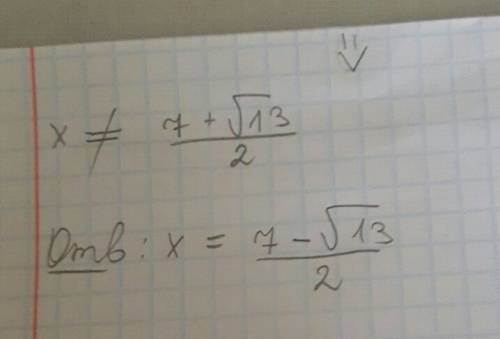 ⇓
x ≠ (7 + √13)/2
Отв: x = (7 − √13)/2